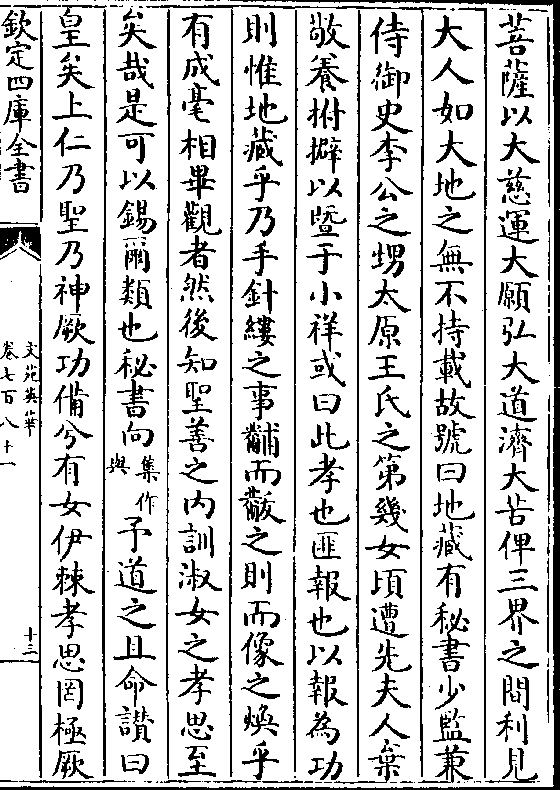 菩薩以大慈運大願弘大道濟大苦俾三界之間利見
大人如大地之無不持載故號曰地藏有秘書少監兼
侍御史李公之甥太原王氏之第幾女頃遭先夫人棄
敬養柎擗以暨于小祥或曰此孝也匪報也以報為功
則惟地藏乎乃手針縷之事黼而黻之則而像之煥乎
有成毫相畢觀者然後知聖善之内訓淑女之孝思至
矣哉是可以錫爾類也秘書向集作與予道之且命讃曰
皇矣上仁乃聖乃神厥功備兮有女伊棘孝思罔極厥
欽定四庫全書
文苑英華
卷七百八十一
十三